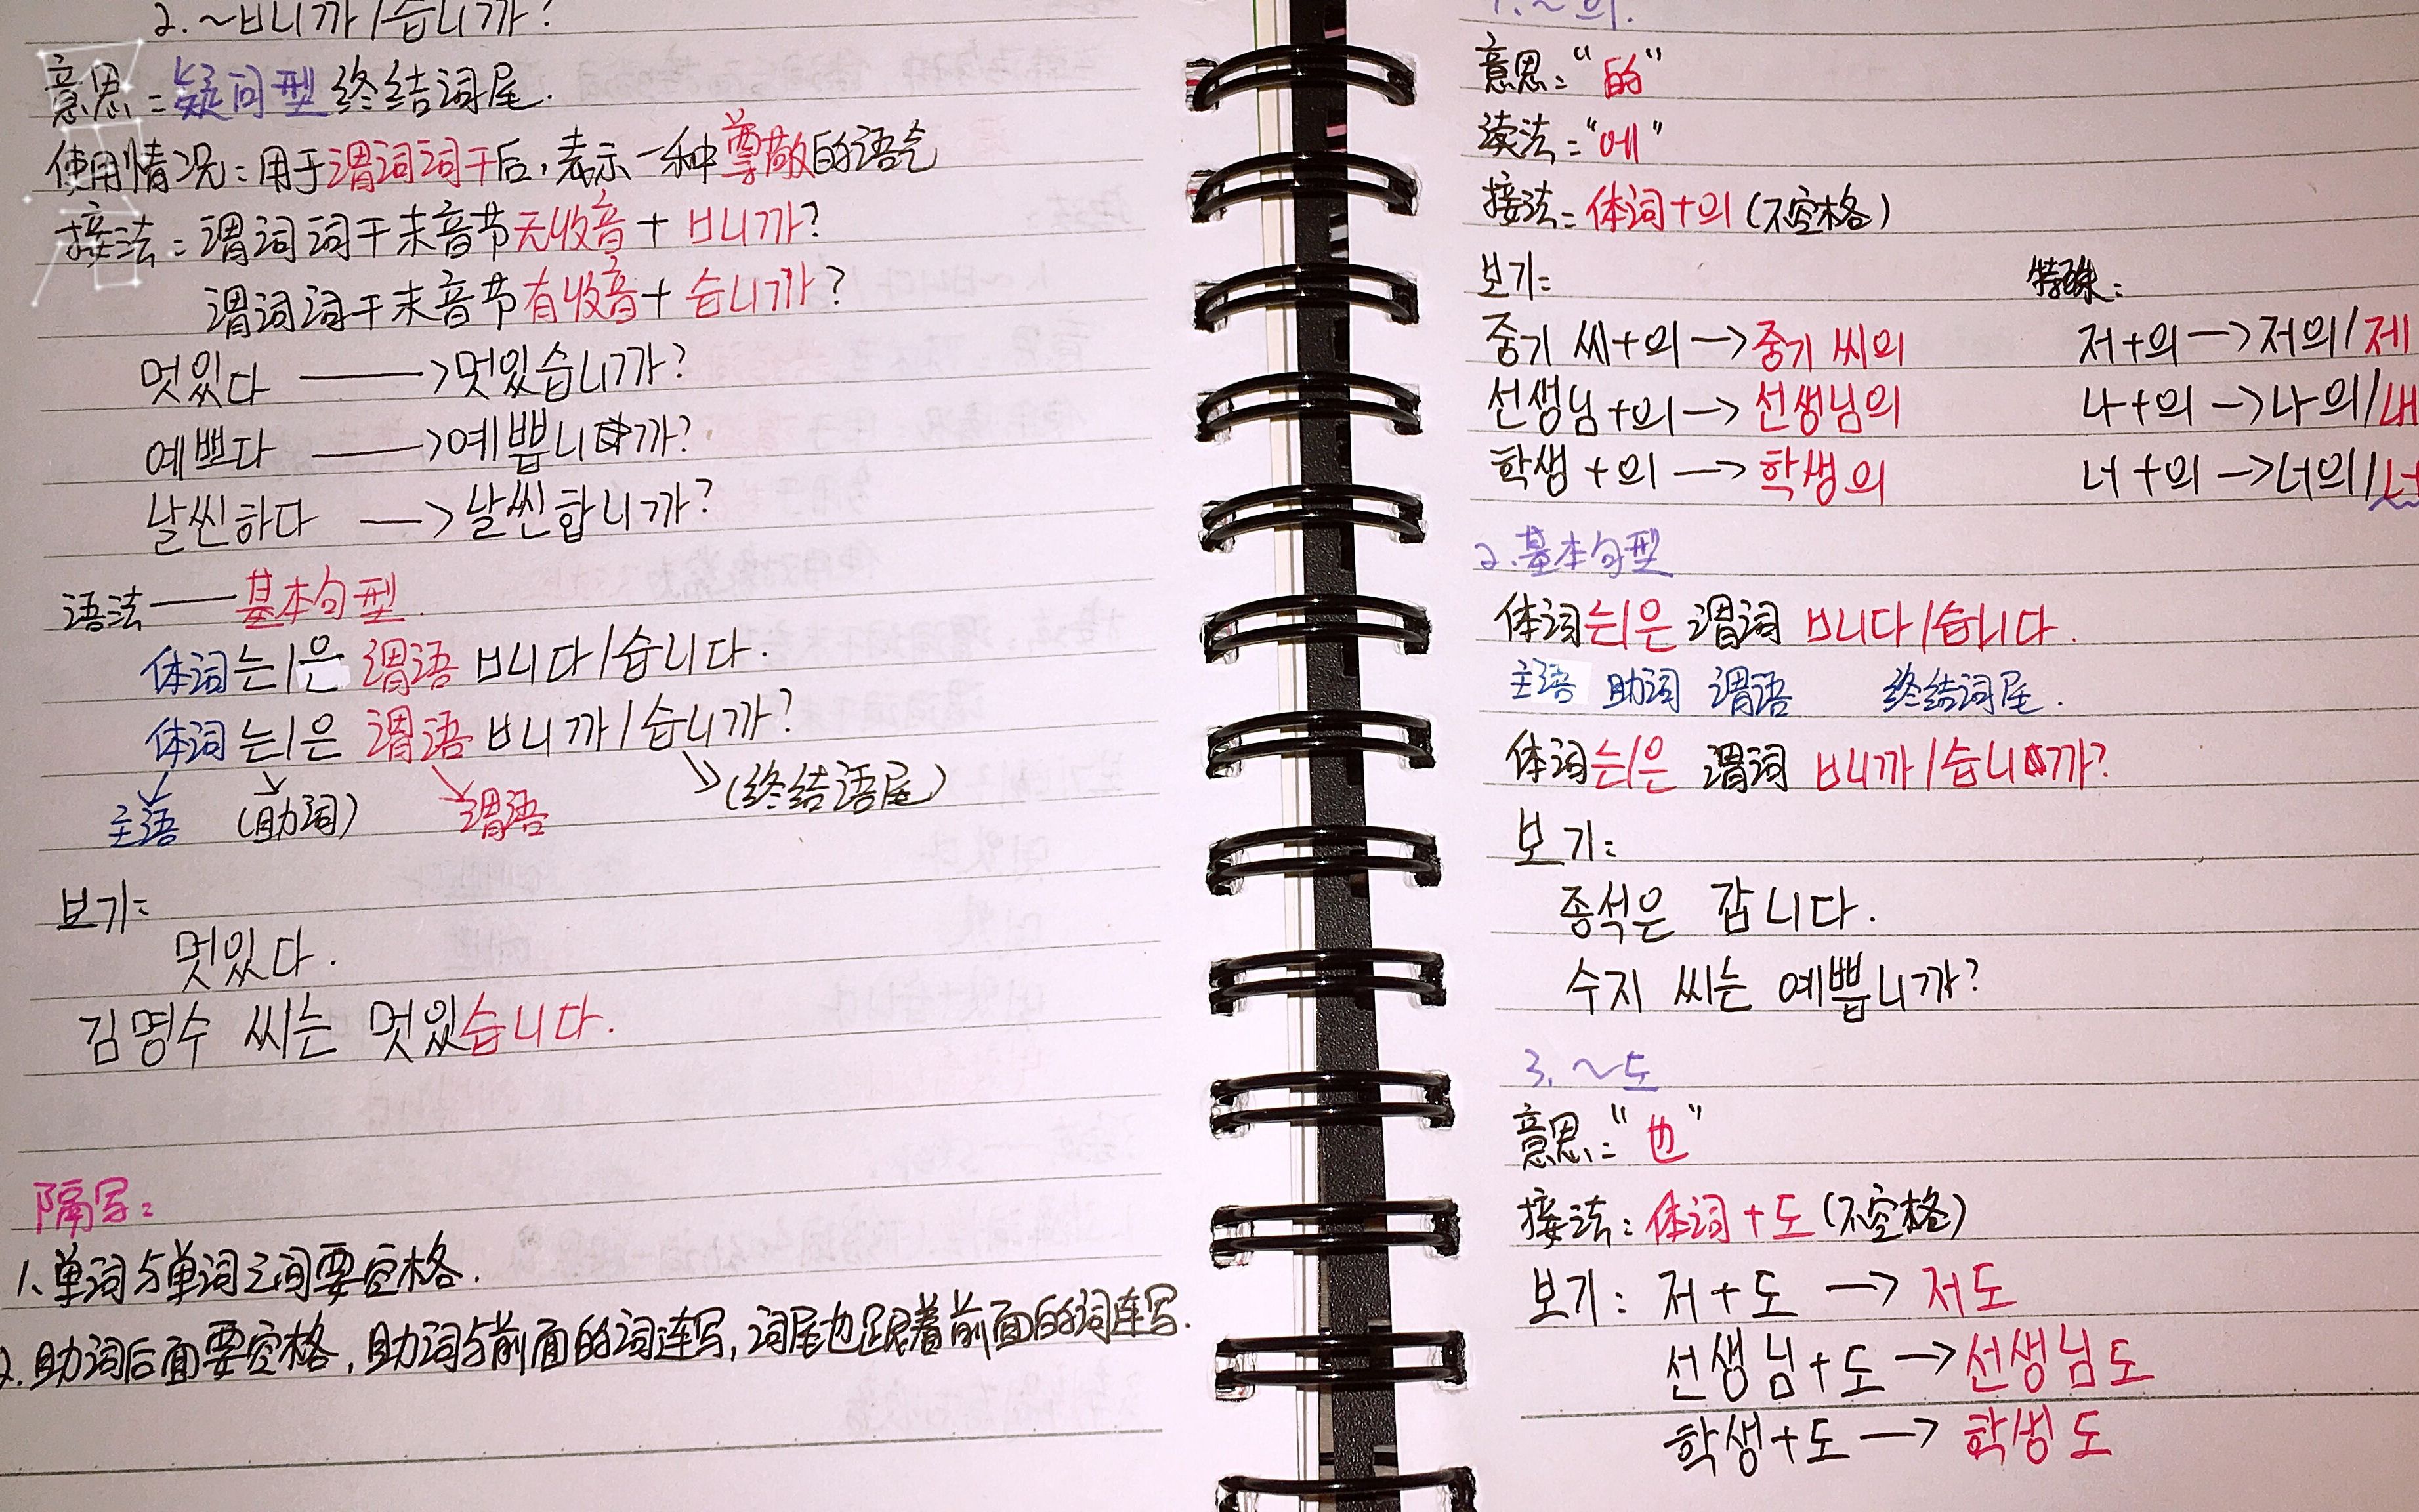 2. ~ㅂ니까/습니까?
意思:疑问型终结词尾.
使用情况:用于谓词词干后,表示一种尊敬的语气
接法:谓词词干末音节无收音+ㅂ니까?
谓词词干末音节有收音+습니까?
멋있다 ——>멋있습니까?
예쁘다 ——>예쁩니까?
날씬하다 —>날씬합니까?
语法——基本句型
体词는/은 谓语 ㅂ니다/습니다.
体词는/은 谓语 ㅂ니까/습니까?
主语 (助词) 谓语 (终结语尾)
보기:
멋있다.
김명수 씨는 멋있습니다.
隔写:
1、单词与单词之间要空格.
2.助词后面要空格,助词与前面的词连写,词尾也跟着前面的词连写.
1.~의.
意思:"的"
读法:"에"
接法:体词+의(不空格)
보기: 特殊:
중기 씨+의—>중기 씨의 저+의—>저의/제
선생님+의—>선생님의 나+의—>나의/내
학생+의—>학생의 너+의—>너의/
2.基本句型
体词는/은 谓词 ㅂ니다/습니다.
主语 助词 谓语 终结词尾.
体词는/은 谓词 ㅂ니까/습니까?
보기:
종석은 갑니다.
수지 씨는 예쁩니까?
3、~도
意思:"也"
接法:体词+도(不空格)
보기: 저+도—>저도
선생님+도—>선생님도
학생+도—>학생도